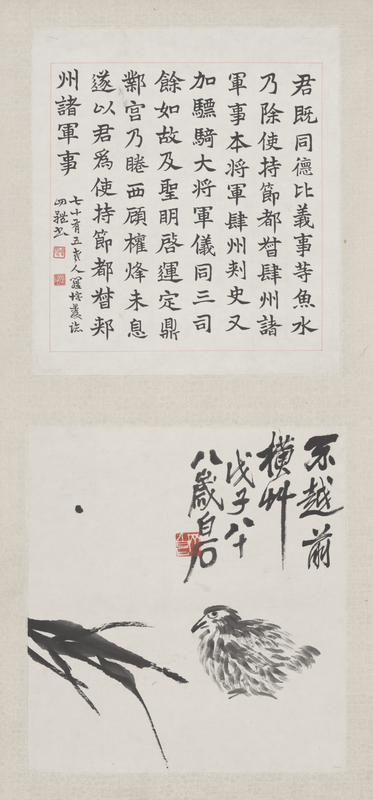 君既同德比義事䒭魚水
乃除使持節都督肆州諸
軍事本將軍肆州刾史又
加驃騎大將軍儀同三司
餘如故及聖明啓運定鼎
鄴宮乃睠西顧權烽未息
遂以君爲使持節都督郟
州諸軍事
七十有五老人羅
不越前
橫艸
戊子八十
八歲白石